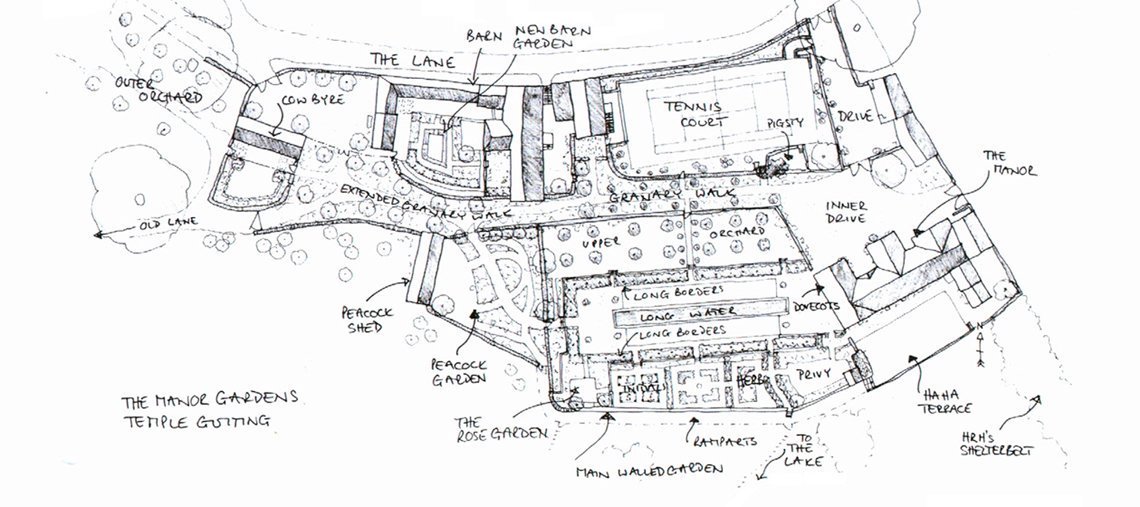 BARN NEW BARN
GARDEN
THE LANE
OUTER
ORCHARD
COW BYRE
TENNIS
COURT
PIGSTY
DRIVE
THE
MANOR
EXTENDED GRANARY WALK
GRANARY WALK
OLD LANE
INNER
DRIVE
UPPER
ORCHARD
LONG BORDERS
DOVECOTS
LONG WATER
LONG BORDERS
PEACOCK
SHED
PEACOCK
GARDEN
INITIALS
HERBS
PRIVY
N
THE MANOR GARDENS
TEMPLE GUTING
THE
ROSE GARDEN
HAHA
TERRACE
RAMPARTS
TO
THE
LAKE
HRH'S
SHELTERBELT
MAIN WALLED GARDEN